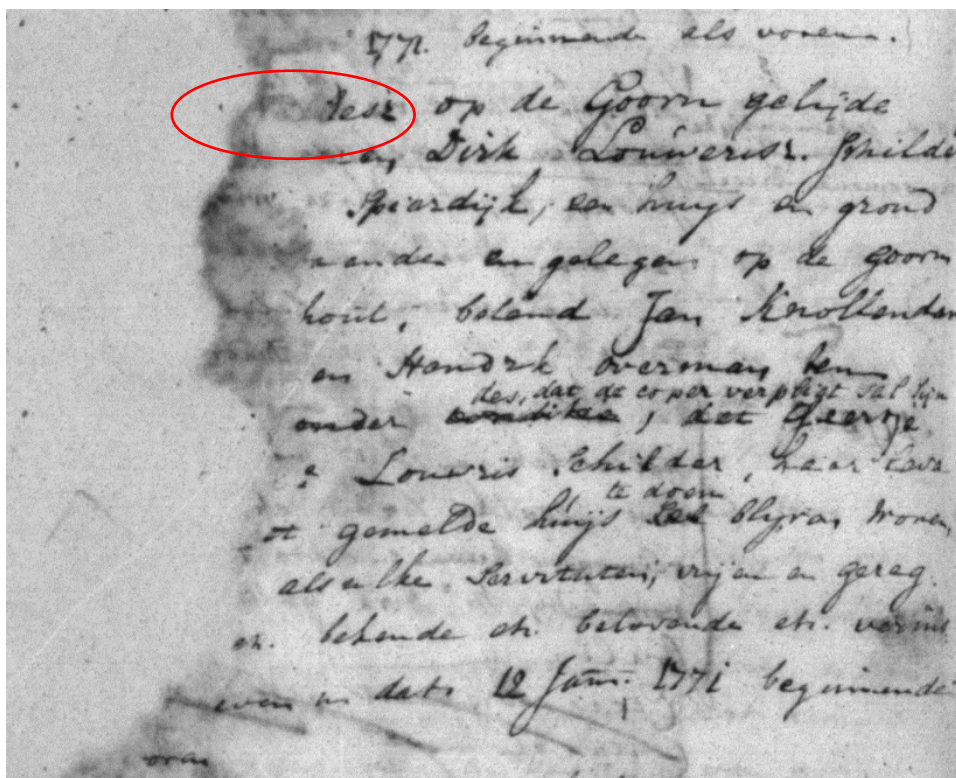 1771. beginnende als voren.
op de Goorn gelijde
en, Dirk Louwerisz. Schilde
Spierdijk, een huijs en grond
anden en gelegen op de goorn
hout, belend Jan Knollendam
en Hendrk overman, ten
des, dat de coper verpligt sal sijn
onder conditie, dat Geertje
Louwris Schilder, haar leve
te doen
ot gemelde huijs sal blijven wonen,
als elke Servituten, vrijen en gereg.
etc. bekende etc. belovende etc.
even in dato 12 Janu. 1771 beginnende
oren